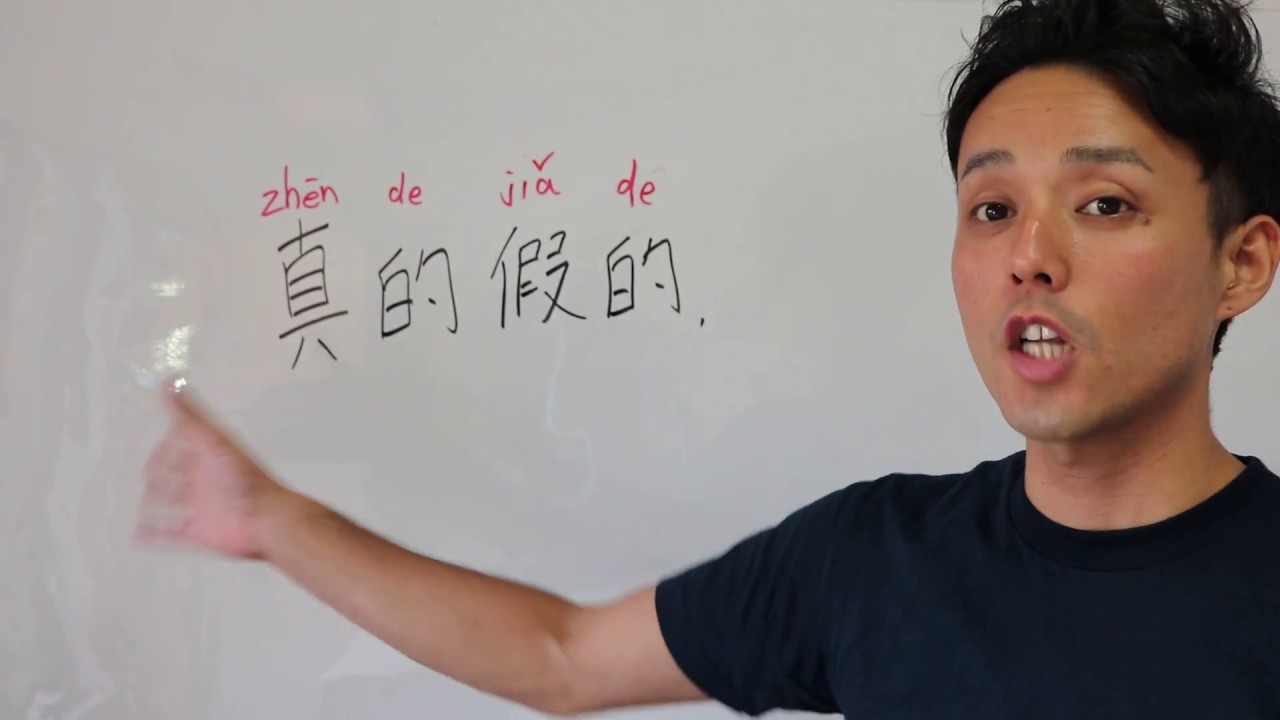 zhēn de jiǎ de
真的假的.